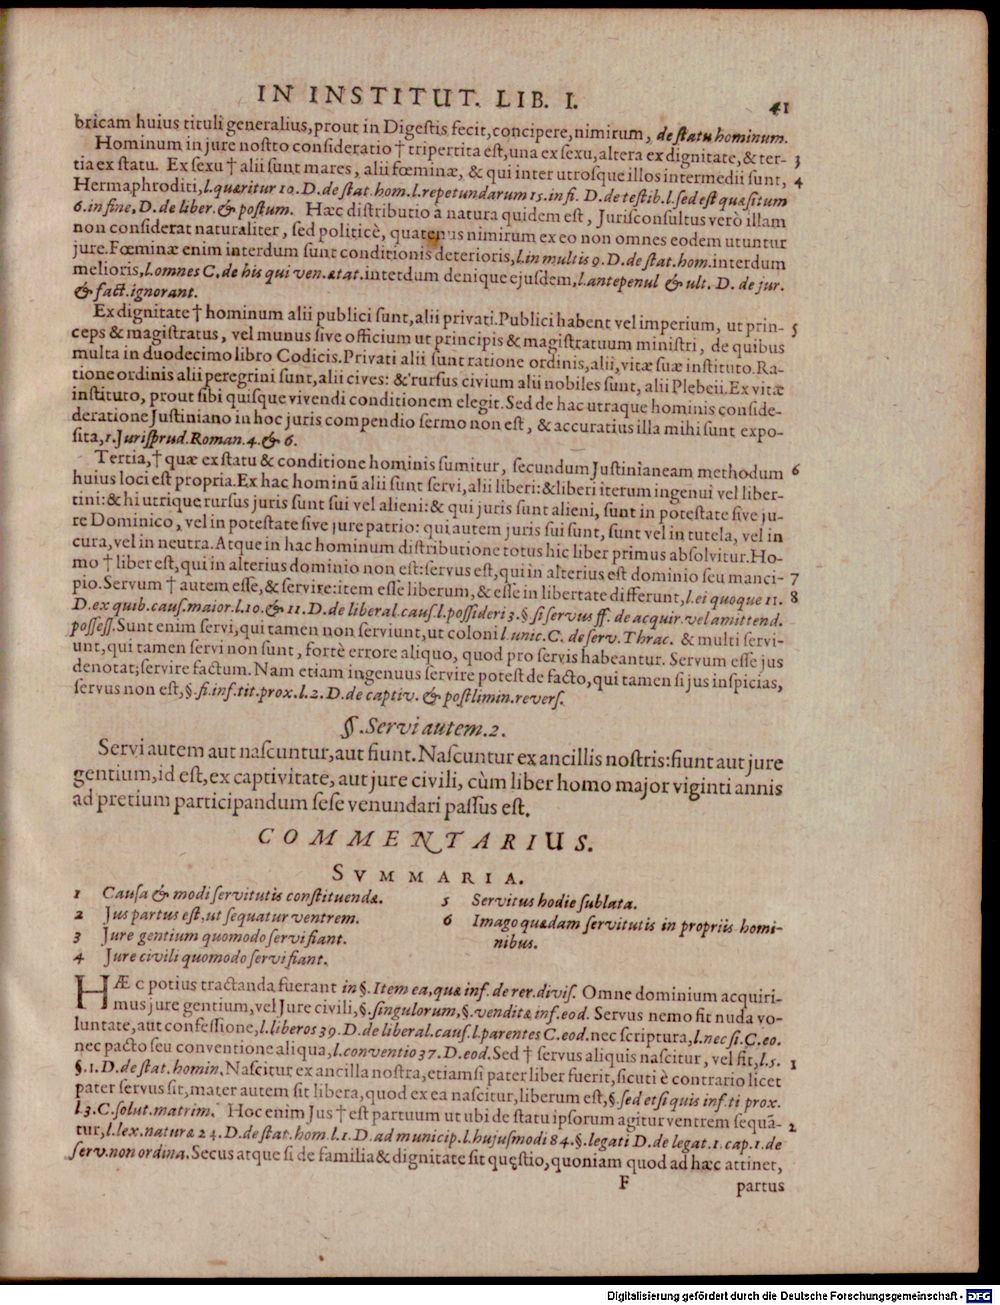 IN INSTITUT. LIB. I. 41
bricam huius tituli generalius, prout in Digestis fecit, concipere, nimirum, de statu hominum.
Hominum in jure nostro consideratio † tripertita est, una ex sexu, altera ex dignitate, & ter- 3
tia ex statu. Ex sexu † alii sunt mares, alii fœminæ, & qui inter utrosque illos intermedii sunt, 4
Hermaphroditi, l. quæritur 10. D. de stat. hom. l. repetundarum 15. in fi. D. de testib. l. sed est quæsitum
6. in fine, D. de liber. & postum. Hæc distributio à natura quidem est, Jurisconsultus verò illam
non considerat naturaliter, sed politicè, quatenus nimirum ex eo non omnes eodem utuntur
jure. Fœminæ enim interdum sunt conditionis deterioris, l. in multis 9. D. de stat. hom. interdum
melioris, l. omnes C. de his qui ven. ætat. interdum denique ejusdem, l. antepenul & ult. D. de jur.
& fact. ignorant.
Ex dignitate † hominum alii publici sunt, alii privati. Publici habent vel imperium, ut prin- 5
ceps & magistratus, vel munus sive officium ut principis & magistratuum ministri, de quibus
multa in duodecimo libro Codicis. Privati alii sunt ratione ordinis, alii, vitæ suæ instituto. Ra-
tione ordinis alii peregrini sunt, alii cives: & rursus civium alii nobiles sunt, alii Plebeii. Ex vitæ
instituto, prout sibi quisque vivendi conditionem elegit. Sed de hac utraque hominis conside-
deratione Justiniano in hoc juris compendio sermo non est, & accuratius illa mihi sunt expo-
sita, 1. Jurisprud. Roman. 4. & 6.
Tertia, † quæ ex statu & conditione hominis sumitur, secundum Justinianeam methodum 6
huius loci est propria. Ex hac hominũ alii sunt servi, alii liberi: & liberi iterum ingenui vel liber-
tini: & hi utrique rursus juris sunt sui vel alieni: & qui juris sunt alieni, sunt in potestate sive ju-
re Dominico, vel in potestate sive jure patrio: qui autem juris sui sunt, sunt vel in tutela, vel in
cura, vel in neutra. Atque in hac hominum distributione totus hic liber primus absolvitur. Ho-
mo † liber est, qui in alterius dominio non est: servus est, qui in alterius est dominio seu manci- 7
pio. Servum † autem esse, & servire: item esse liberum, & esse in libertate differunt, l. ei quoque 11. 8
D. ex quib. caus. maior. l. 10. & 11. D. de liberal. caus. l. possideri 3. §. si servus ff. de acquir. vel amittend.
possess. Sunt enim servi, qui tamen non serviunt, ut coloni l. unic. C. de serv. Thrac. & multi servi-
unt, qui tamen servi non sunt, fortè errore aliquo, quod pro servis habeantur. Servum esse jus
denotat; servire factum. Nam etiam ingenuus servire potest de facto, qui tamen si jus inspicias,
servus non est, §. si. inf. tit. prox. l. 2. D. de captiv. & postlimin. revers.
§. Servi autem. 2.
Servi autem aut nascuntur, aut fiunt. Nascuntur ex ancillis nostris: fiunt aut jure
gentium, id est, ex captivitate, aut jure civili, cùm liber homo major viginti annis
ad pretium participandum sese venundari passus est.
COMMENTARIUS.
SVMMARIA.
1 Causa & modi servitutis constituendæ.
2 Jus partus est, ut sequatur ventrem.
3 Jure gentium quomodo servi fiant.
4 Jure civili quomodo servi fiant.
5 Servitus hodie sublata.
6 Imago quædam servitutis in propriis homi-
nibus.
HÆc potius tractanda fuerant in §. Item ea, quæ inf. de rer. divis. Omne dominium acquiri-
mus jure gentium, vel Jure civili, §. singulorum, §. vendita inf. eod. Servus nemo fit nuda vo-
luntate, aut confessione, l. liberos 39. D. de liberal. caus. l. parentes C. eod. nec scriptura, l. nec si. C. eo.
nec pacto seu conventione aliqua, l. conventio 37. D. eod. Sed † servus aliquis nascitur, vel fit, l. 5. 1
§. 1. D. de stat. homin. Nascitur ex ancilla nostra, etiamsi pater liber fuerit, sicuti è contrario licet
pater servus sit, mater autem sit libera, quod ex ea nascitur, liberum est, §. sed etsi quis inf. ti prox.
l. 3. C. solut. matrim. Hoc enim Jus † est partuum ut ubi de statu ipsorum agitur ventrem sequã- 2
tur, l. lex. naturæ 24. D. de stat. hom. l. 1. D. ad municip. l. hujusmodi 84. §. legati D. de legat. 1. cap. 1. de
serv. non ordina. Secus atque si de familia & dignitate sit quęstio, quoniam quod ad hæc attinet,
F partus
Digitalisierung gefördert durch die Deutsche Forschungsgemeinschaft - DFG